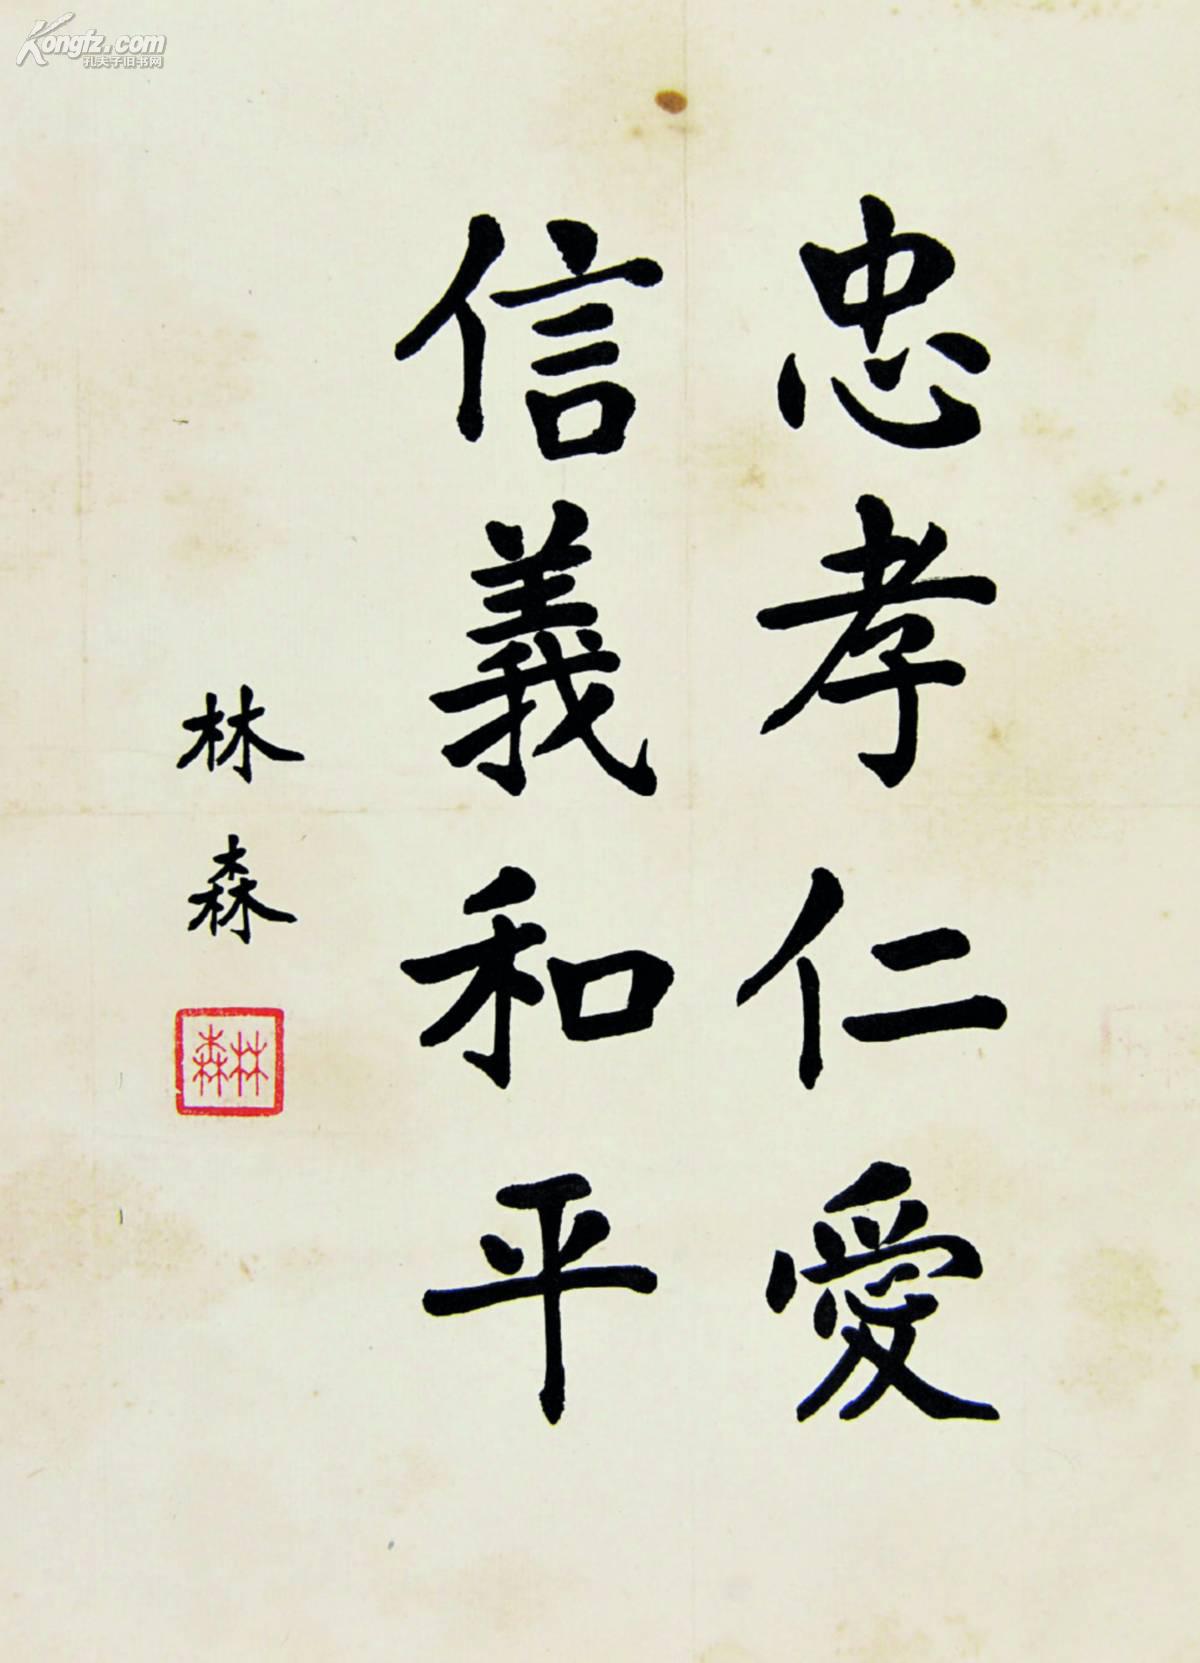 忠孝仁愛
信義和平
林森
林森
Kongfz.com
孔夫子旧书网